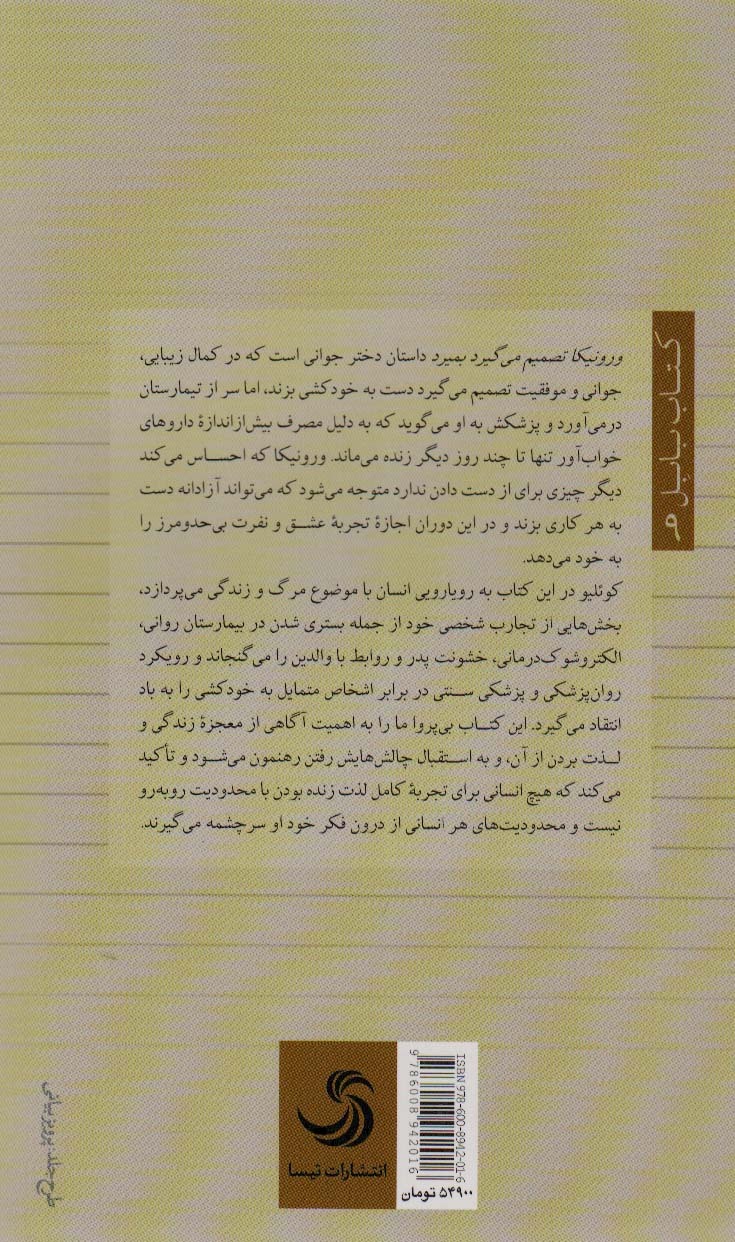 کتاب بابل ۹
ورونیکا تصمیم می‌گیرد بمیرد داستان دختر جوانی است که در کمال زیبایی،
جوانی و موفقیت تصمیم می‌گیرد دست به خودکشی بزند، اما سر از تیمارستان
درمی‌آورد و پزشکش به او می‌گوید که به دلیل مصرف بیش‌ازاندازهٔ داروهای
خواب‌آور تنها تا چند روز دیگر زنده می‌ماند. ورونیکا که احساس می‌کند
دیگر چیزی برای از دست دادن ندارد متوجه می‌شود که می‌تواند آزادانه دست
به هر کاری بزند و در این دوران اجازهٔ تجربهٔ عشق و نفرت بی‌حدومرز را
به خود می‌دهد.
کوئلیو در این کتاب به رویارویی انسان با موضوع مرگ و زندگی می‌پردازد،
بخش‌هایی از تجارب شخصی خود از جمله بستری شدن در بیمارستان روانی،
الکتروشوک‌درمانی، خشونت پدر و روابط با والدین را می‌گنجاند و رویکرد
روان‌پزشکی و پزشکی سنتی در برابر اشخاص متمایل به خودکشی را به باد
انتقاد می‌گیرد. این کتاب بی‌پروا ما را به اهمیت آگاهی از معجزهٔ زندگی و
لذت بردن از آن، و به استقبال چالش‌هایش رفتن رهنمون می‌شود و تأکید
می‌کند که هیچ انسانی برای تجربهٔ کامل لذت زنده بودن با محدودیت روبه‌رو
نیست و محدودیت‌های هر انسانی از درون فکر خود او سرچشمه می‌گیرند.
ISBN 978-600-8942-01-6
9 786008 942016
۵۴۹۰۰ تومان
انتشارات تیسا
طرح جلد: پرویز بیانی